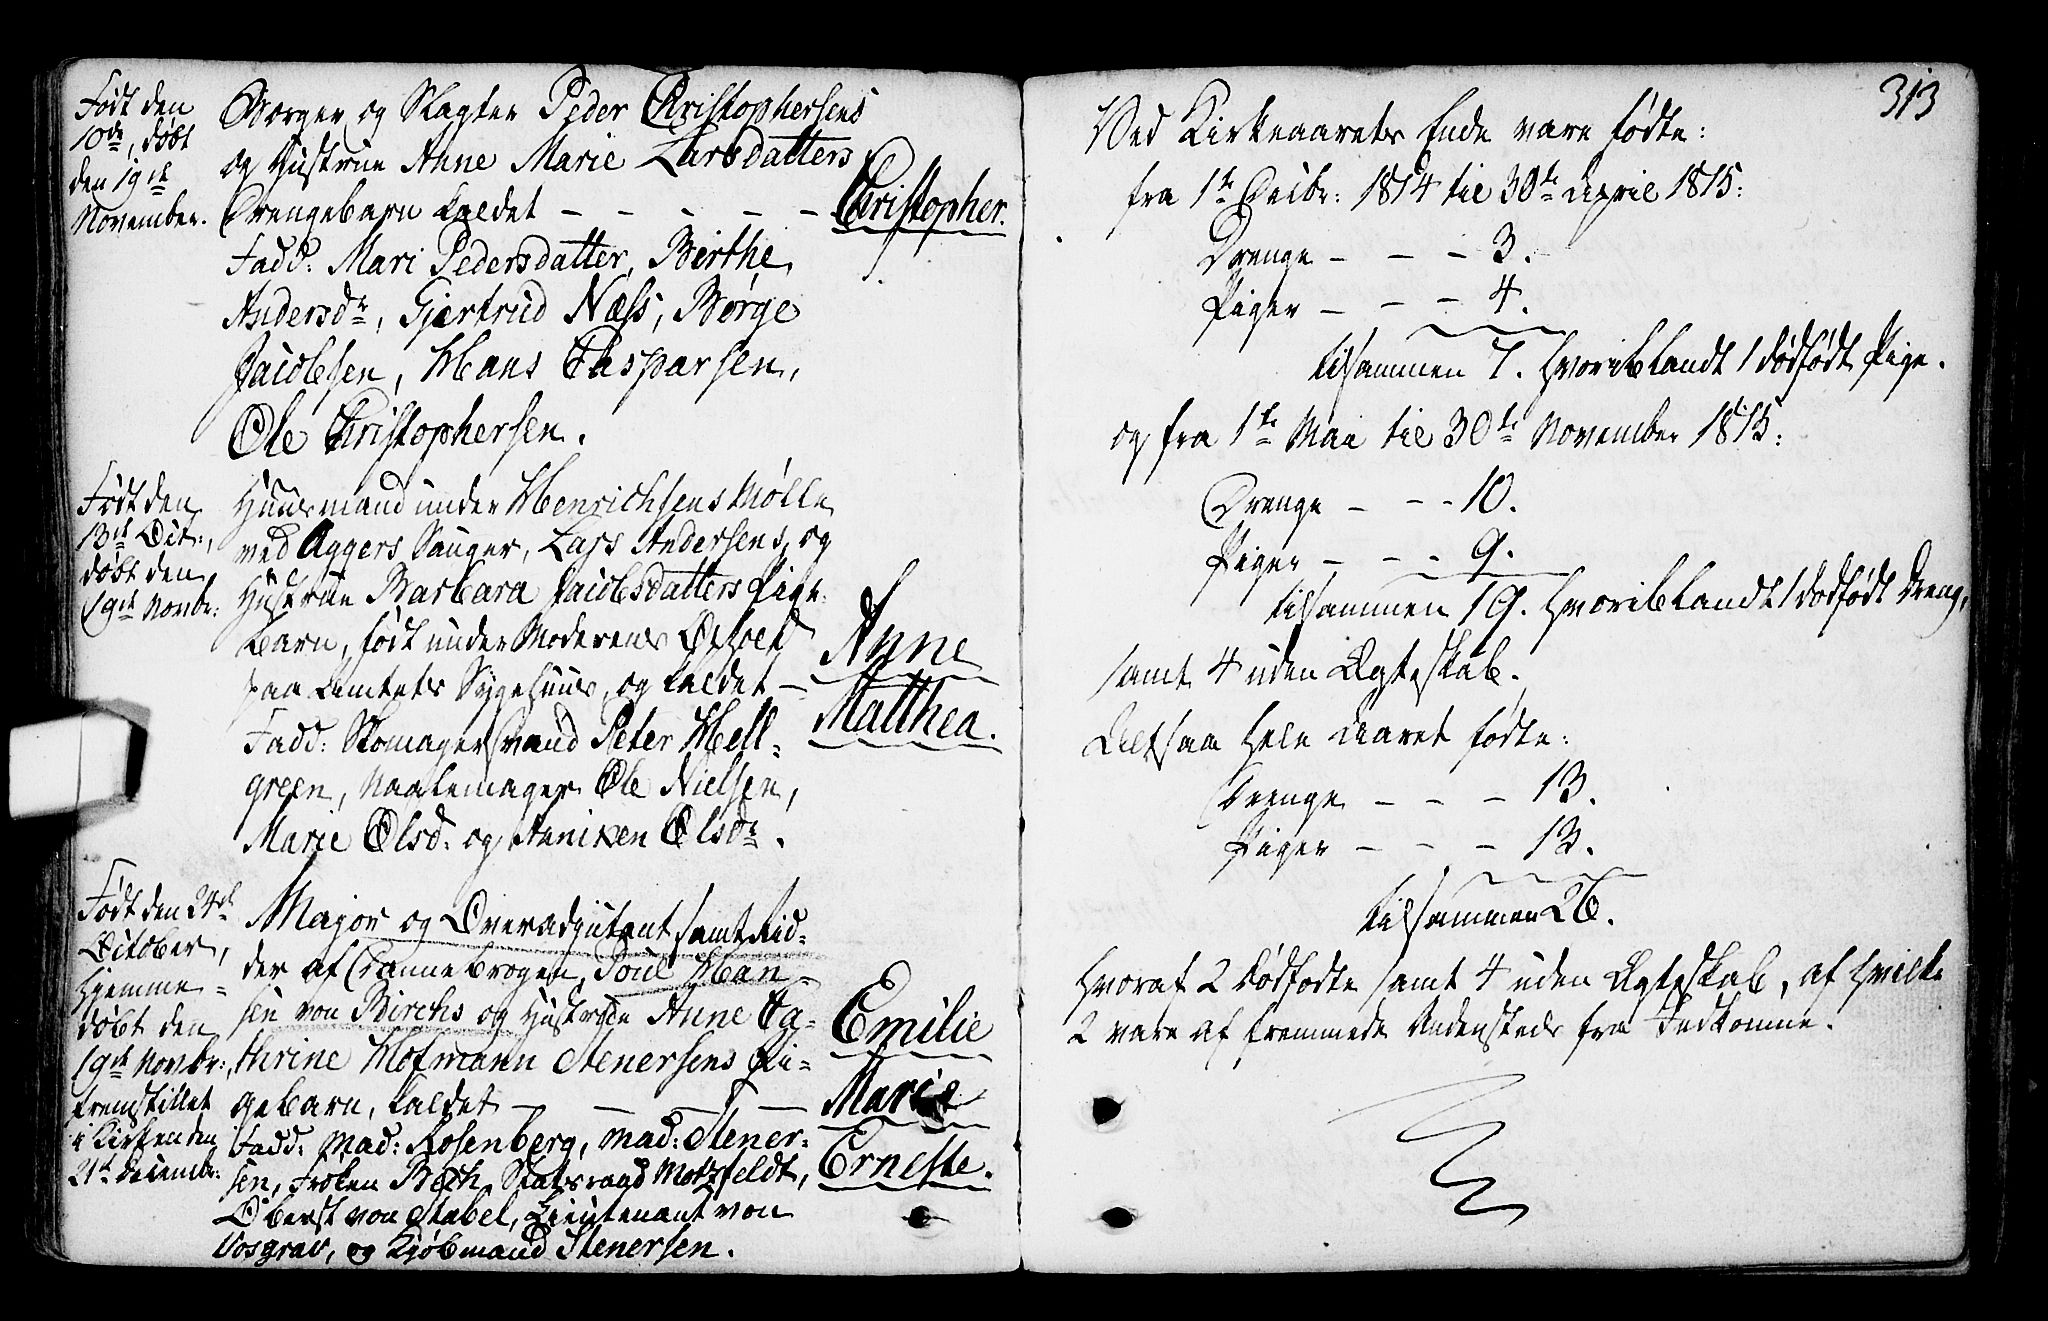 Født den
10de, døbt
den 19de
November.
Borger og Slagter Peder Christophersens
og Hustrue Anne Marie Larsdatters
Drengebarn kaldet - - - - -
Christopher.
Fadd: Mari Pedersdatter, Birthe
Andersdr, Gjertrud Næss, Børge
Jacobsen, Hans Casparsen,
Ole Christophersen.
Født den
13de Oct:,
døbt den
19de Novbr:
Huusmand under Henrichsens Mølle
ved Aggers Sauger, Lars Andersens, og
Hustrue Barbara Jacobsdatters Pige-
barn, født under Moderens Ophold
paa Amtets Sygehuus, og kaldet -
Anne
Matthea.
Fadd: Skomagersvend Peter Hell-
green, Naalemager Ole Nielsen,
Marie Olsd: og Anniken Olsdr.
Født den 24de
October,
hjemme-
døbt den
19de Novbr:,
fremstillet
i Kirken den
21de Decembr:
Major og Overadjutant samt Rid-
der af Dannebrogen, Poul Han-
sen von Birchs og Hustrue Anne Ca-
thrine Hofmann Stenersens Pi-
gebarn, kaldet - - - -
Emilie
Marie
Erneste.
Fadd: Mad: Rosenberg, Mad: Stener-
sen, Frøken Bech, Statsraad Motzfeldt,
Oberst von Stabel, Lieutenant von
Vosgrav, og Kjøbmand Stenersen.
313
Ved Kirkeaarets Ende vare fødte:
fra 1te Decbr: 1814 til 30te April 1815:
Drenge - - - 3.
Piger - - - 4.
tilsammen 7. hvoriblandt 1 dødfødt Pige.
og fra 1te Mai til 30te November 1815:
Drenge - - - 10.
Piger - - - 9.
tilsammen 19. hvoriblandt 1 dødfødt Dreng,
samt 4 uden Ægteskab.
Altsaa hele Aaret fødte:
Drenge - - - 13.
Piger - - - 13.
tilsammen 26.
hvoraf 2 dødfødte samt 4 uden Ægteskab, af hvilke
2 vare af fremmede Andensteds fra Indkomne.